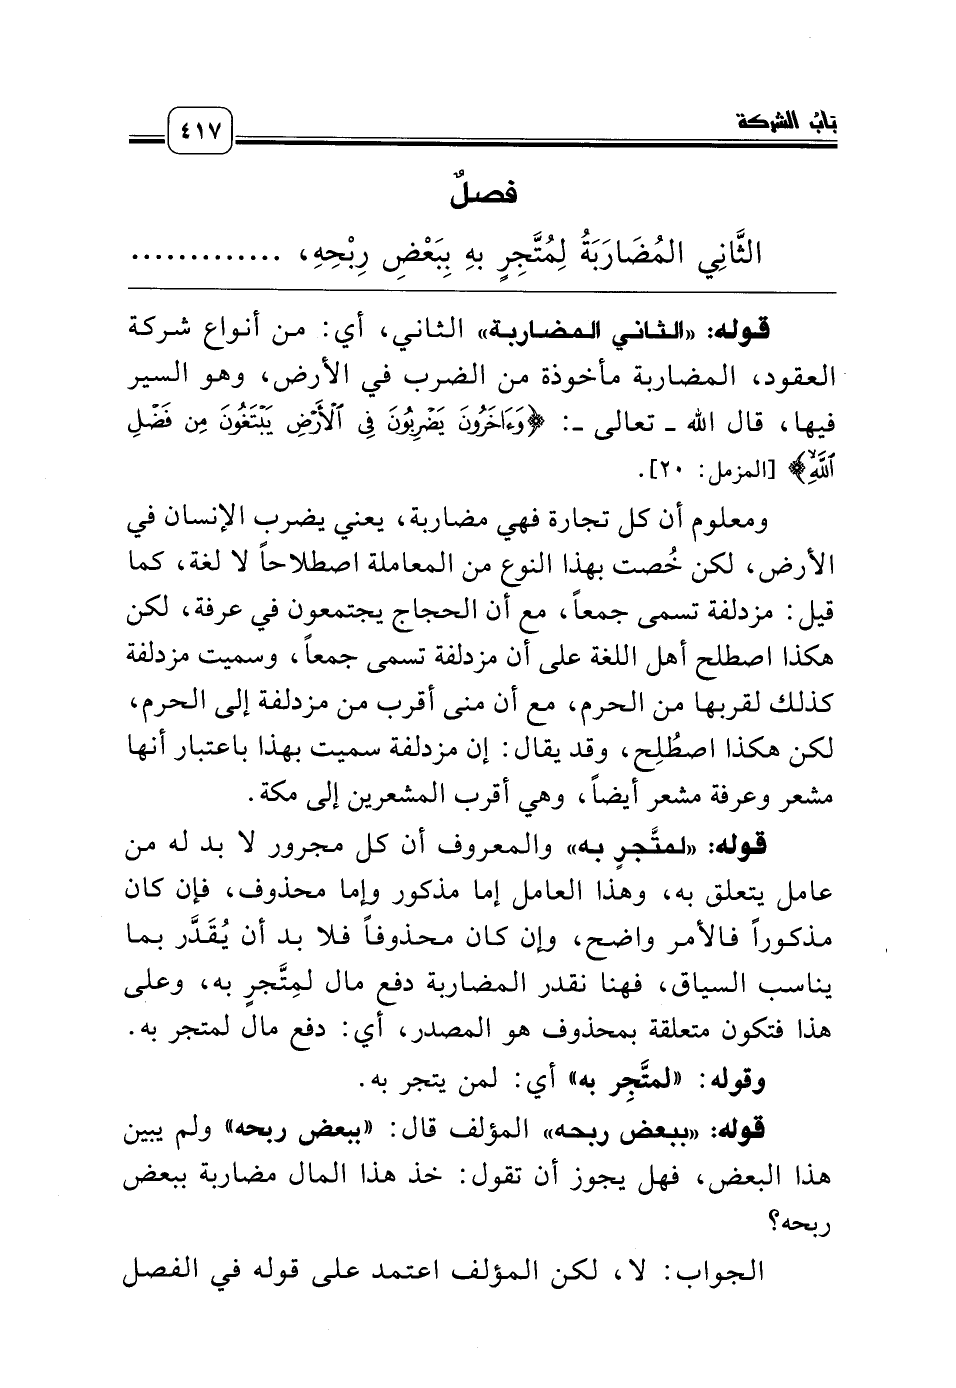 بَابُ الشركة
٤١٧
فصلٌ
الثَّانِي المُضَارَبَةُ لِمُتَّجِرٍ بِهِ بِبَعْضِ رِبْحِهِ، .............
قوله: «الثاني المضاربة» الثاني، أي: من أنواع شركة
العقود، المضاربة مأخوذة من الضرب في الأرض، وهو السير
فيها، قال الله ـ تعالى ـ: ﴿وَءَاخَرُونَ يَضْرِبُونَ فِي ٱلْأَرْضِ يَبْتَغُونَ مِن فَضْلِ
ٱللَّهِۙ﴾ [المزمل: ٢٠].
ومعلوم أن كل تجارة فهي مضاربة، يعني يضرب الإنسان في
الأرض، لكن خُصت بهذا النوع من المعاملة اصطلاحاً لا لغة، كما
قيل: مزدلفة تسمى جمعاً، مع أن الحجاج يجتمعون في عرفة، لكن
هكذا اصطلح أهل اللغة على أن مزدلفة تسمى جمعاً، وسميت مزدلفة
كذلك لقربها من الحرم، مع أن منى أقرب من مزدلفة إلى الحرم،
لكن هكذا اصطُلِح، وقد يقال: إن مزدلفة سميت بهذا باعتبار أنها
مشعر وعرفة مشعر أيضاً، وهي أقرب المشعرين إلى مكة.
قوله: «لمتَّجرٍ به» والمعروف أن كل مجرور لا بد له من
عامل يتعلق به، وهذا العامل إما مذكور وإما محذوف، فإن كان
مذكوراً فالأمر واضح، وإن كان محذوفاً فلا بد أن يُقَدَّر بما
يناسب السياق، فهنا نقدر المضاربة دفع مال لمتَّجرٍ به، وعلى
هذا فتكون متعلقة بمحذوف هو المصدر، أي: دفع مال لمتجر به.
وقوله: «لمتَّجِر به» أي: لمن يتجر به.
قوله: «ببعض ربحه» المؤلف قال: «ببعض ربحه» ولم يبين
هذا البعض، فهل يجوز أن تقول: خذ هذا المال مضاربة ببعض
ربحه؟
الجواب: لا، لكن المؤلف اعتمد على قوله في الفصل